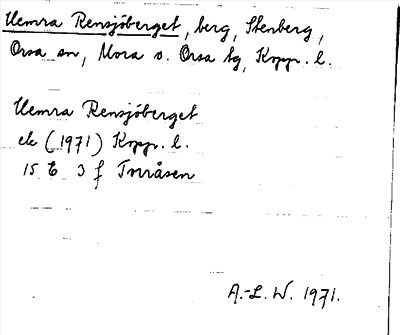 Hemra Rensjöberget, berg, Stenberg,
Orsa sn, Mora o. Orsa tg, Kopp. l.
Hemra Rensjöberget
ek (1971) Kopp. l.
15 E 3 f Tnråsen
A.-L. W. 1971.